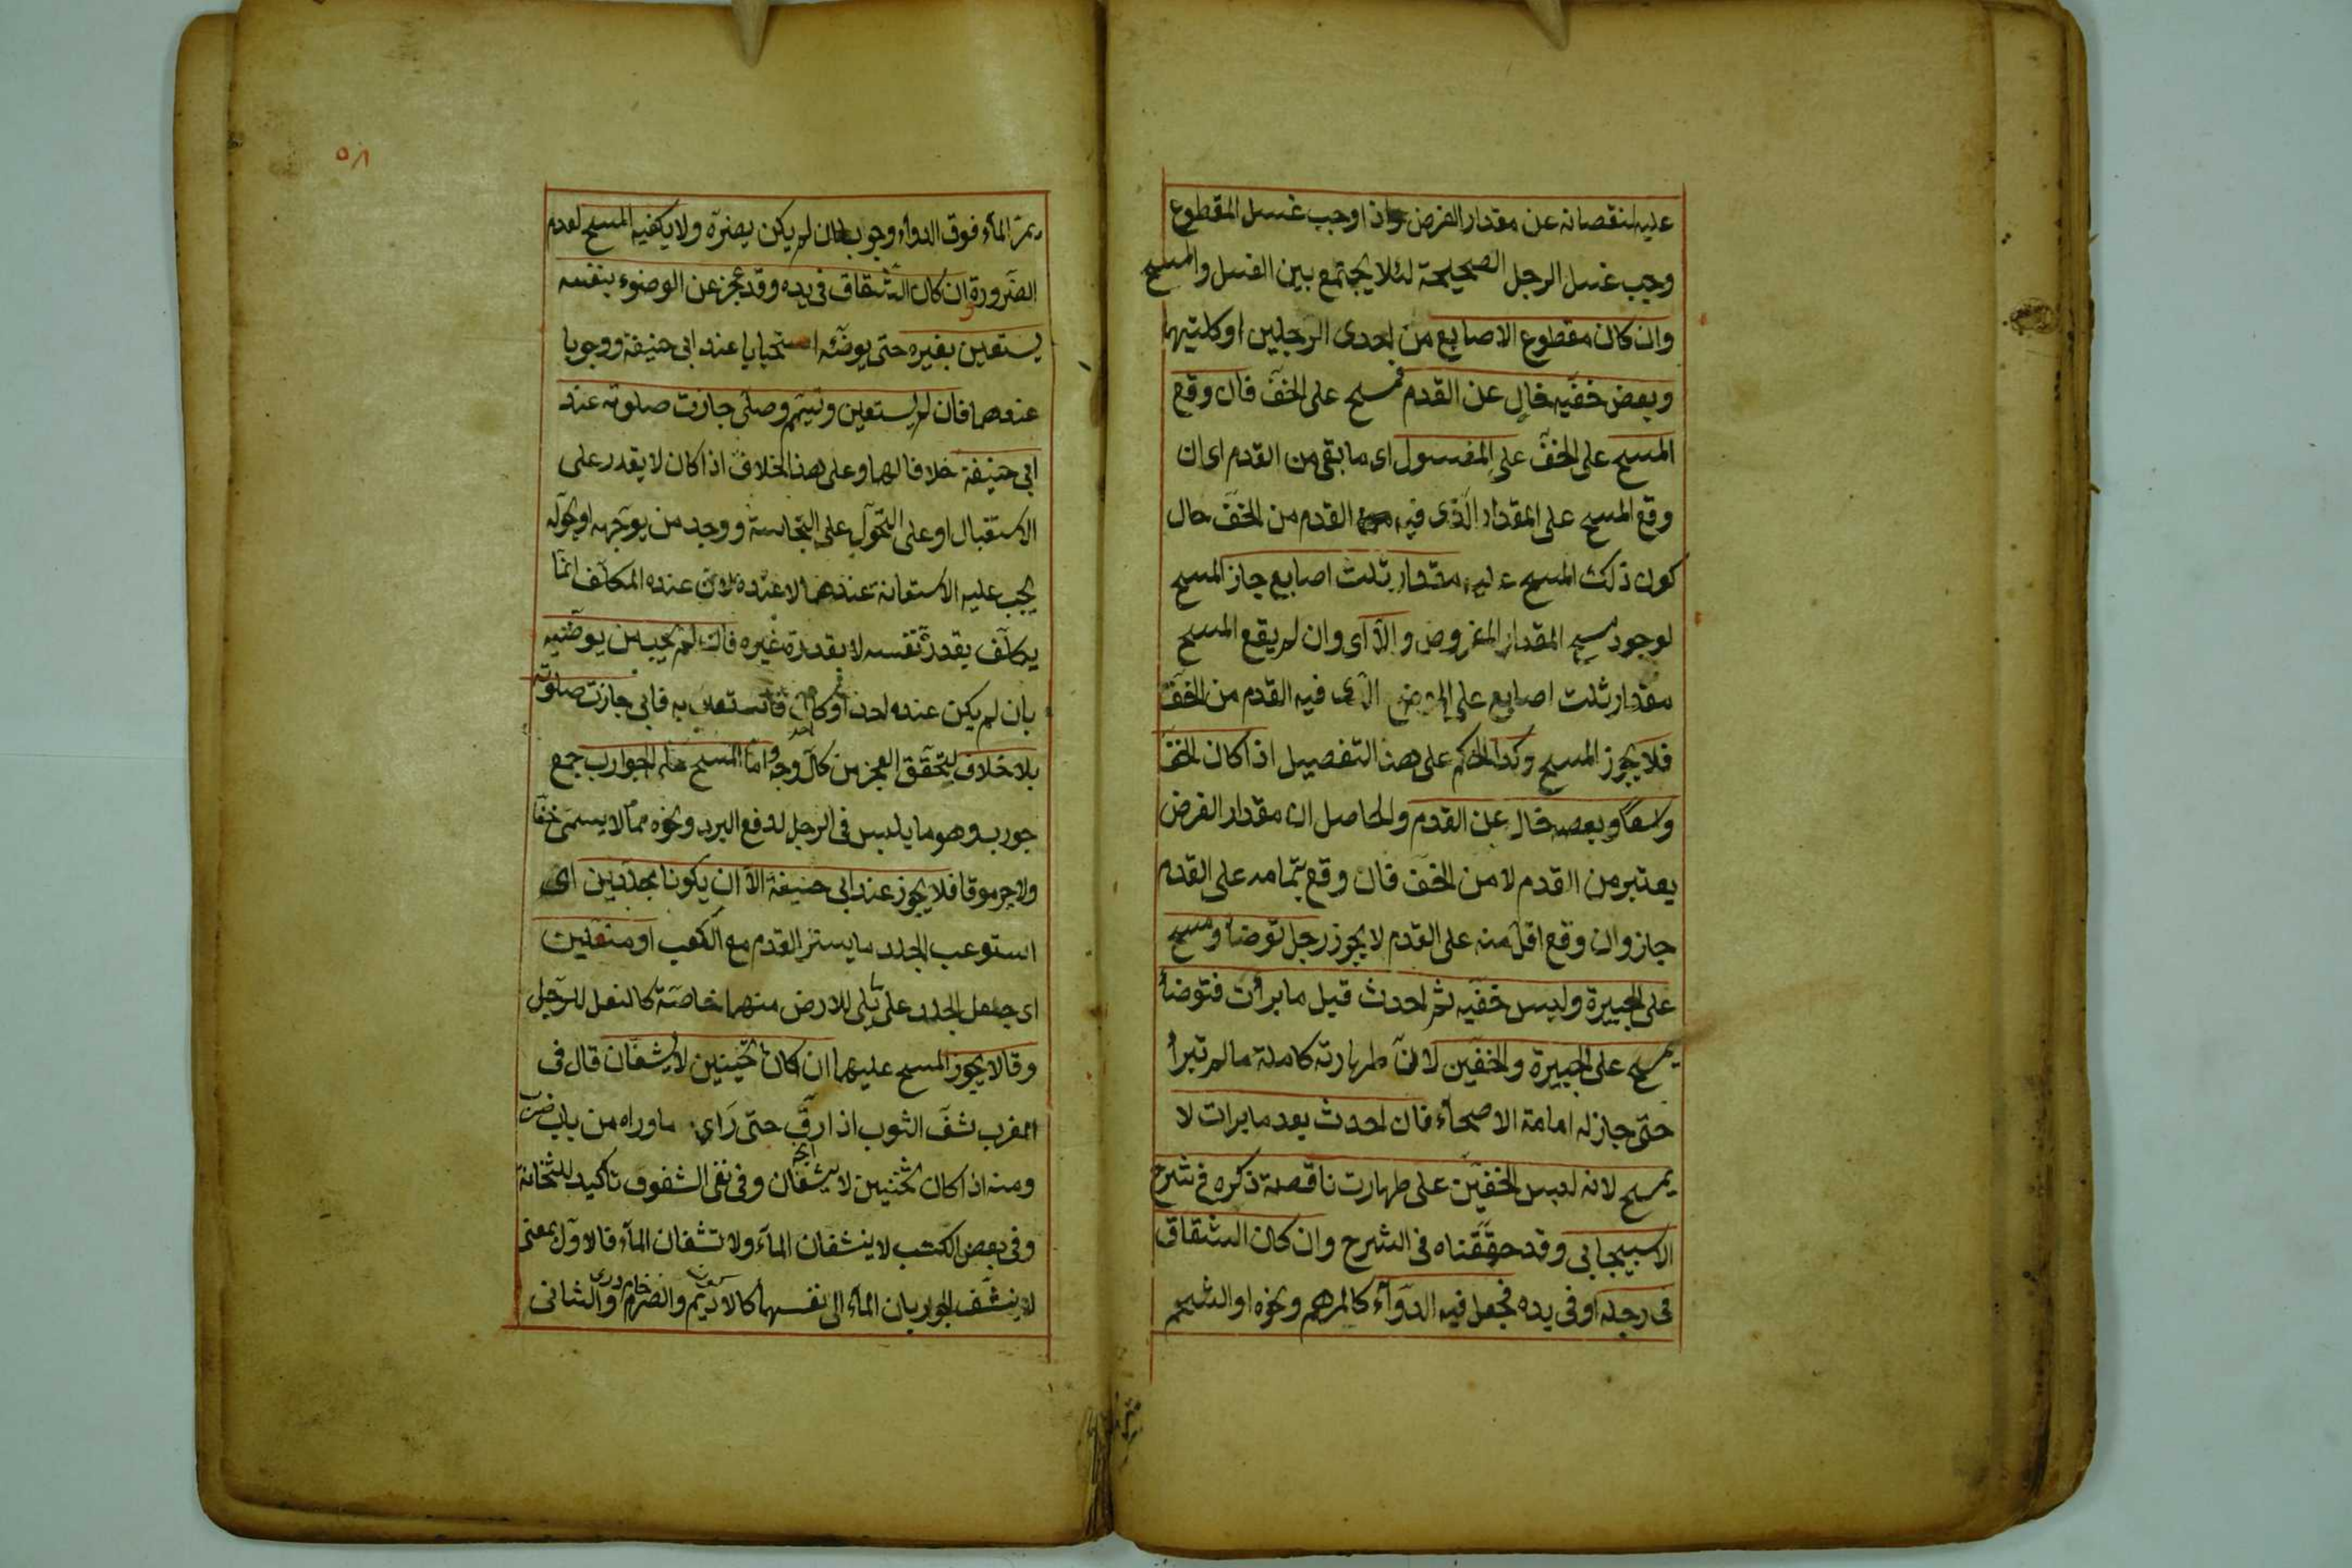 عليه لنقصانه عن مقدار الفرض واذا وجب غسل المقطوع
وجب غسل الرجل الصحيحة لئلا يجتمع بين الغسل والمسح
وان كان مقطوع الاصابع من احدى الرجلين او كلتيهما
وبعض خفّيه خالٍ عن القدم فمسح على الخفّ فان وقع
المسح على الخفّ على المغسول اى ما بقى من القدم اى ان
وقع المسح على المقدار الّذى فيه القدم من الخفّ حال
كون ذلك المسح عليه مقدار ثلث اصابع جاز المسح
لوجود مسح المقدار المفروض والاّ اى وان لم يقع المسح
مقدار ثلث اصابع على الموضع الّذى فيه القدم من الخفّ
فلا يجوز المسح وكذا الحكم على هذا التفصيل اذا كان الخفّ
واسعًا وبعضه خال عن القدم والحاصل ان مقدار الفرض
يعتبر من القدم لا من الخفّ فان وقع بتمامه على القدم
جاز وان وقع اقلّ منه على القدم لا يجوز رجل توضأ ومسح
على الجبيرة ولبس خفّيه ثم احدث قبل ما برأت فتوضأ
يمسح على الجبيرة والخفّين لانّ طهارته كاملة مالم تبرأ
حتّى جاز له امامة الاصحاء فان احدث بعد ما برات لا
يمسح لانه لبس الخفّين على طهارت ناقصة ذكره فى شرح
الاسبيجابى وقد حقّقناه فى الشرح وان كان الشقاق
فى رجله او فى يده فجعل فيه الدّوآء كالمرهم ونحوه او الشحم
٥٨
يمرّ المآء فوق الدواء وجوبا ان لم يكن يضرّه ولا يكفيه المسح لعدم
الضّرورة ان كان الشّقاق فى يده وقد عجز عن الوضوء بنفسه
يستعين بغيره حتى يوضّئه استحبابا عند ابى حنيفة ووجوبا
عندهما فان لم يستعين وتيمّم وصلّى جازت صلوته عند
ابى حنيفة خلافا لهما وعلى هذا الخلاف اذا كان لا يقدر على
الاستقبال او على التّحوّل على النّجاسة ووجد من يوجّهه او يحوّله
يجب عليه الاستعانة عندهما لا عنده لانّ عنده المكلّف انّما
يكلّف بقدرة نفسه لا بقدرة غيره فان لم يجد من يوضّئه
بان لم يكن عنده احد او كان فاستعان به فابى جازت صلوته
بلا خلاف لتحقّق العجز من كلّ وجه وامّا المسح على الجوارب جمع
جورب وهو ما يلبس فى الرجل لدفع البرد ونحوه ممّا لا يسمّى خفّا
ولا جرموقا فلا يجوز عند ابى حنيفة الاّ ان يكونا مجلّدين اى
استوعب الجلد ما يستر القدم مع الكعب او منعّلين
اى جعل الجلد على ما يلى للارض منهما خاصّة كالنعل للرّجل
وقالا يجوز المسح عليهما ان كان ثخينين لا يشفّان قال فى
المغرب شفّ الثوب اذا رقّ حتّى رأى ما وراه من باب ضرب
ومنه اذا كان ثخنيين لا يشفّان وفى نفى الشفوف تاكيد للثخانة
وفى بعض الكتب لا ينشفان المآء ولا تشفان المآء فالاوّل بمعنى
لا ينشّف الجوربان المآء الى نفسهما كالاديم والصّرم والثانى